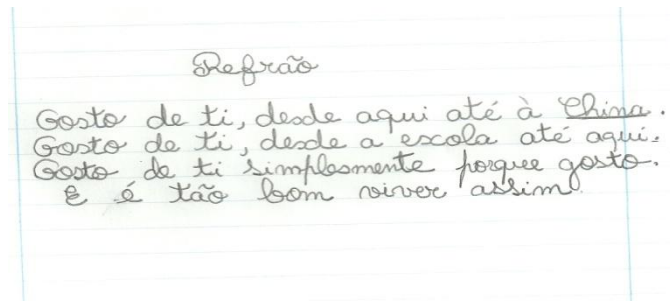 Refrão
Gosto de ti, desde aqui até à China.
Gosto de ti, desde a escola até aqui.
Gosto de ti simplesmente porque gosto.
E é tão bom viver assim.